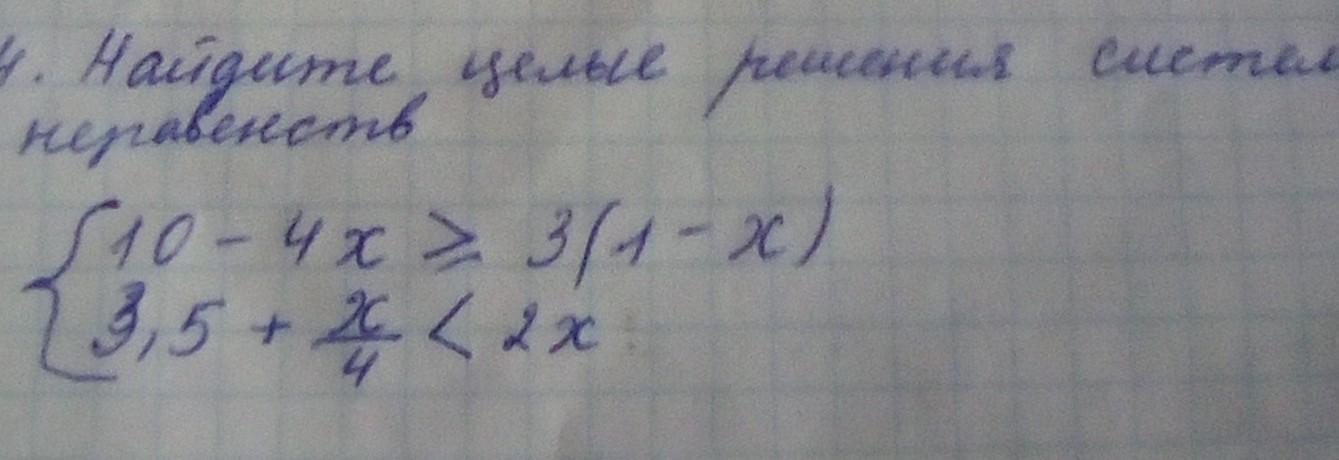 4. Найдите целые решения систем
неравенств
{10 - 4x ≥ 3(1 - x)
3,5 + x/4 < 2x